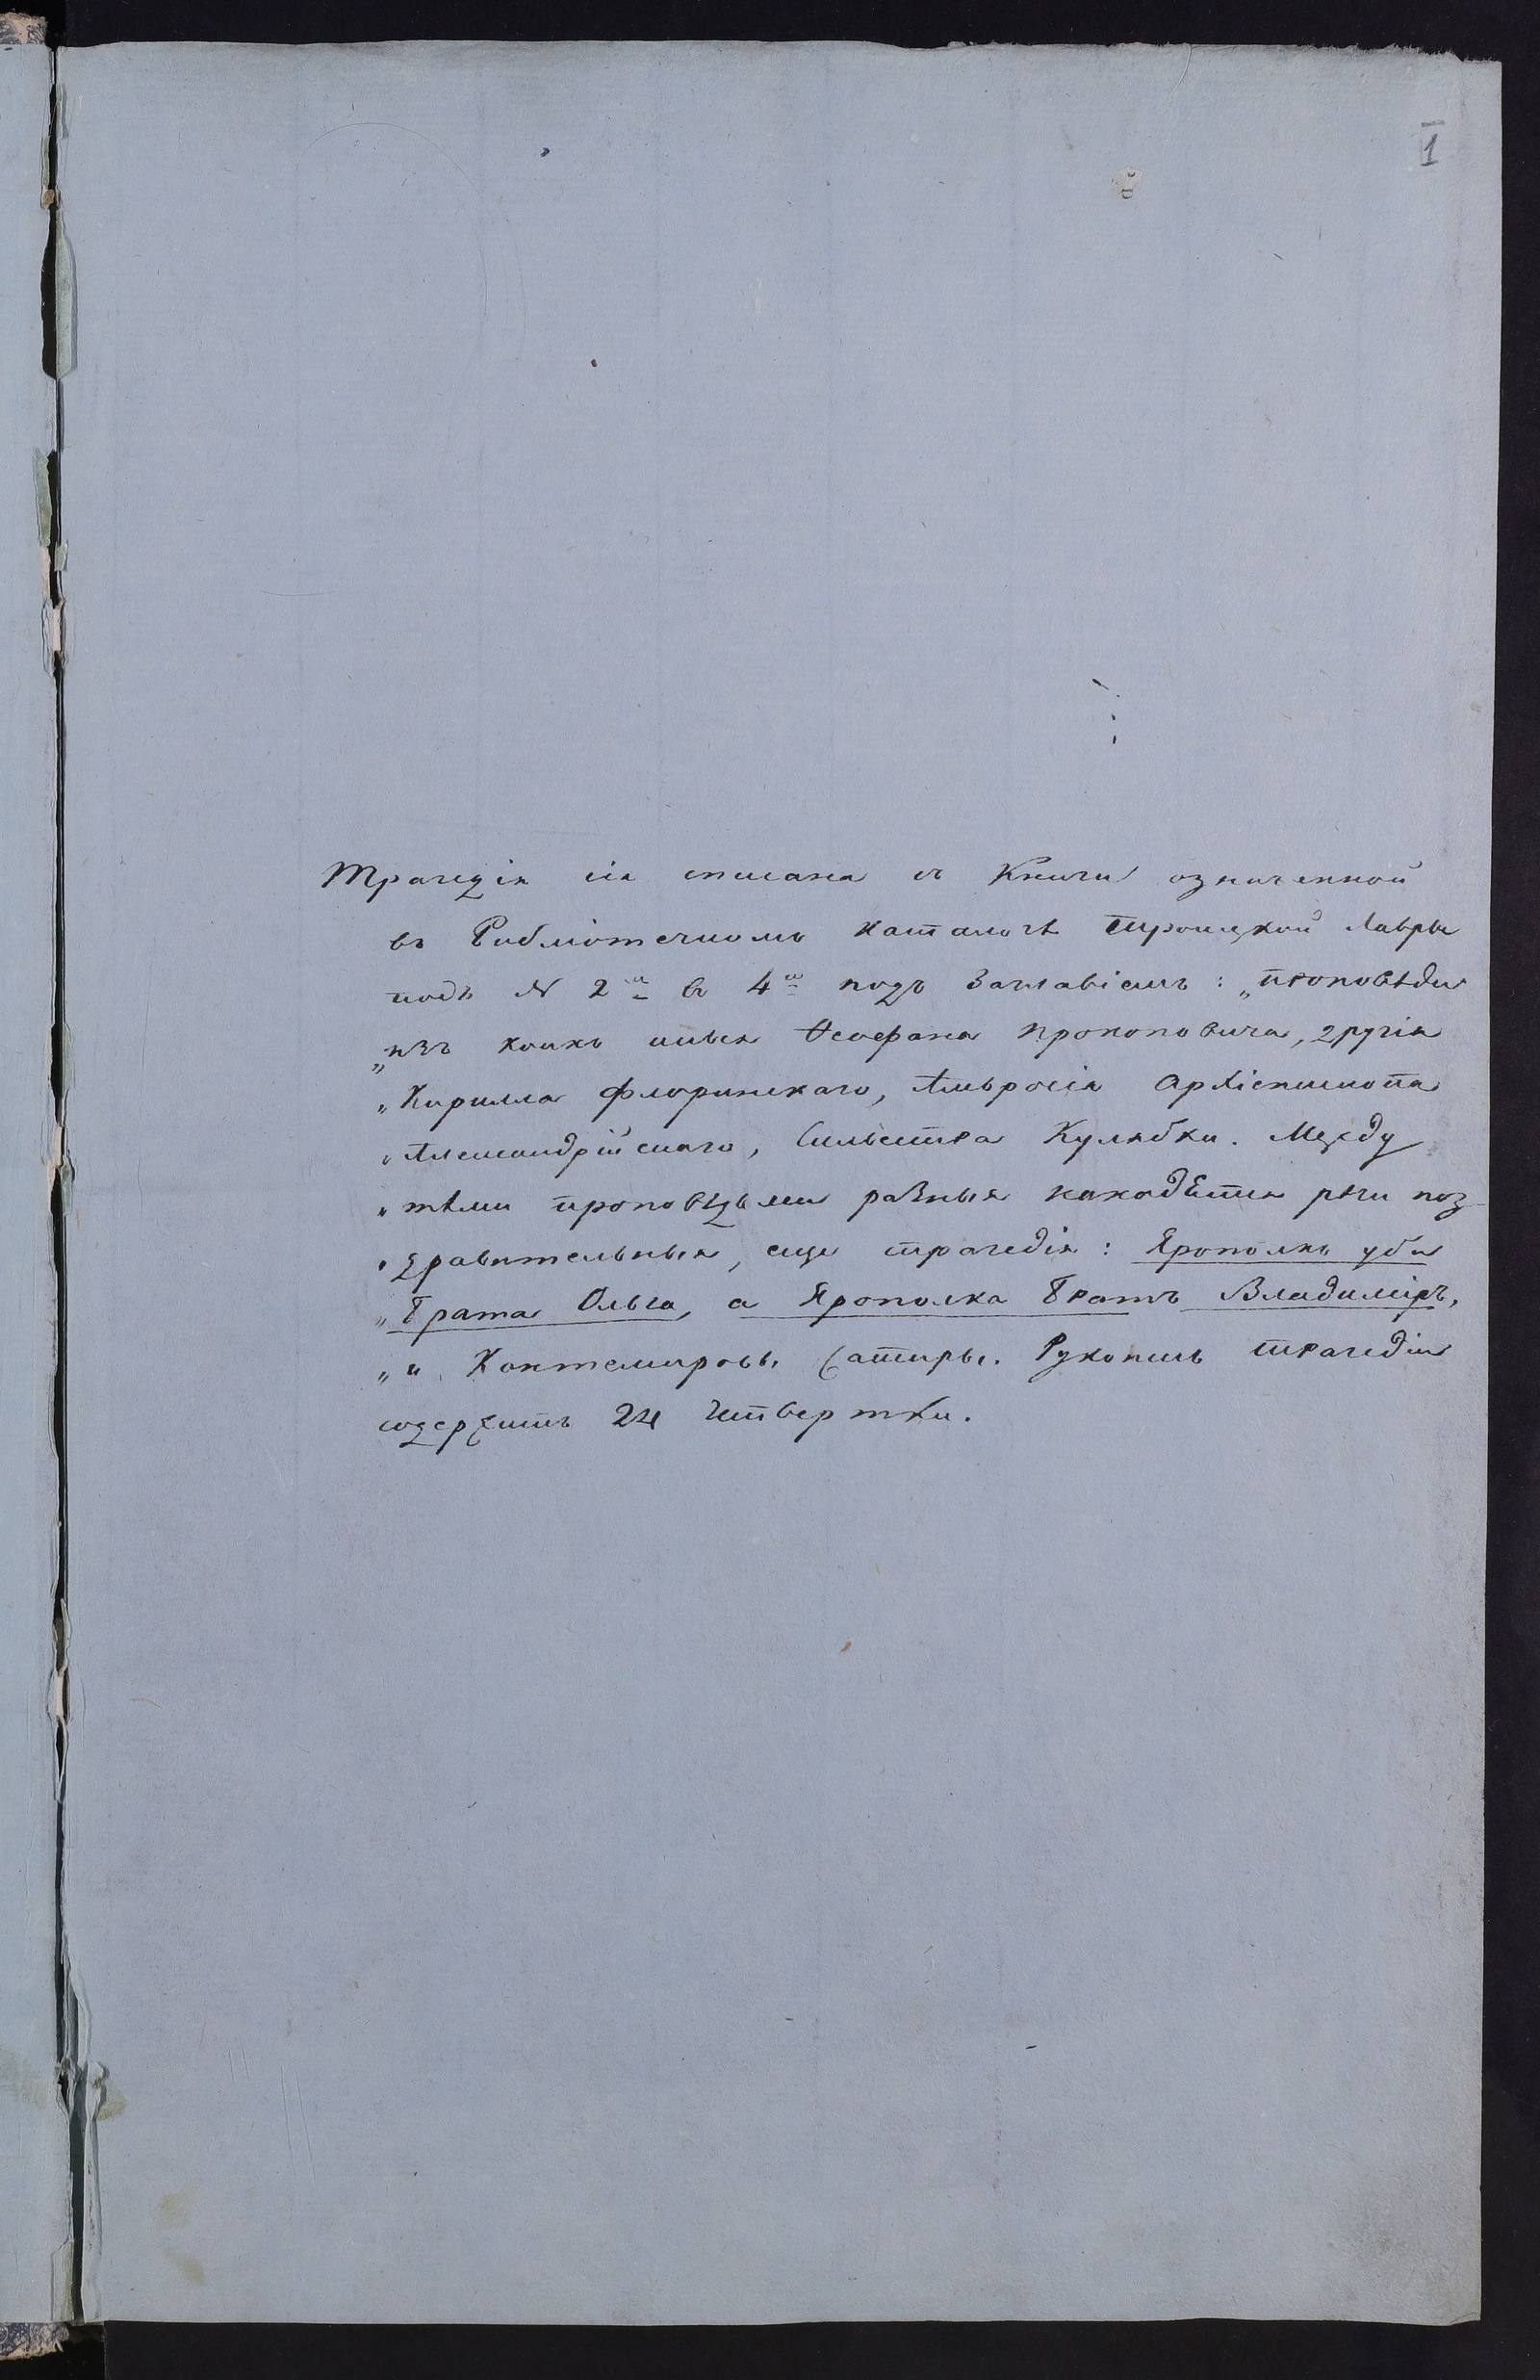 1
Трагедія сія списана съ Книги означенной
въ Библіотечномъ каталогѣ троицкой Лавры
подъ N 2 въ 4 подъ Заглавіемъ: „проповѣди
„изъ коихъ Ѳеофана Прокоповича, другія
„Кирилла флоринскаго, Амвросія Архіепископа
„Александрійскаго, Сильвестра Кулябки. Между
„тѣми проповѣдьми разныя находятся рѣчи поз-
„дравительныя, еще трагедія: Ярополкъ уби
„брата Ольга, а Ярополка братъ Владиміръ,
„и Кантемировы Сатиры. Рукопись трагедіи
содержитъ 24 четвертки.